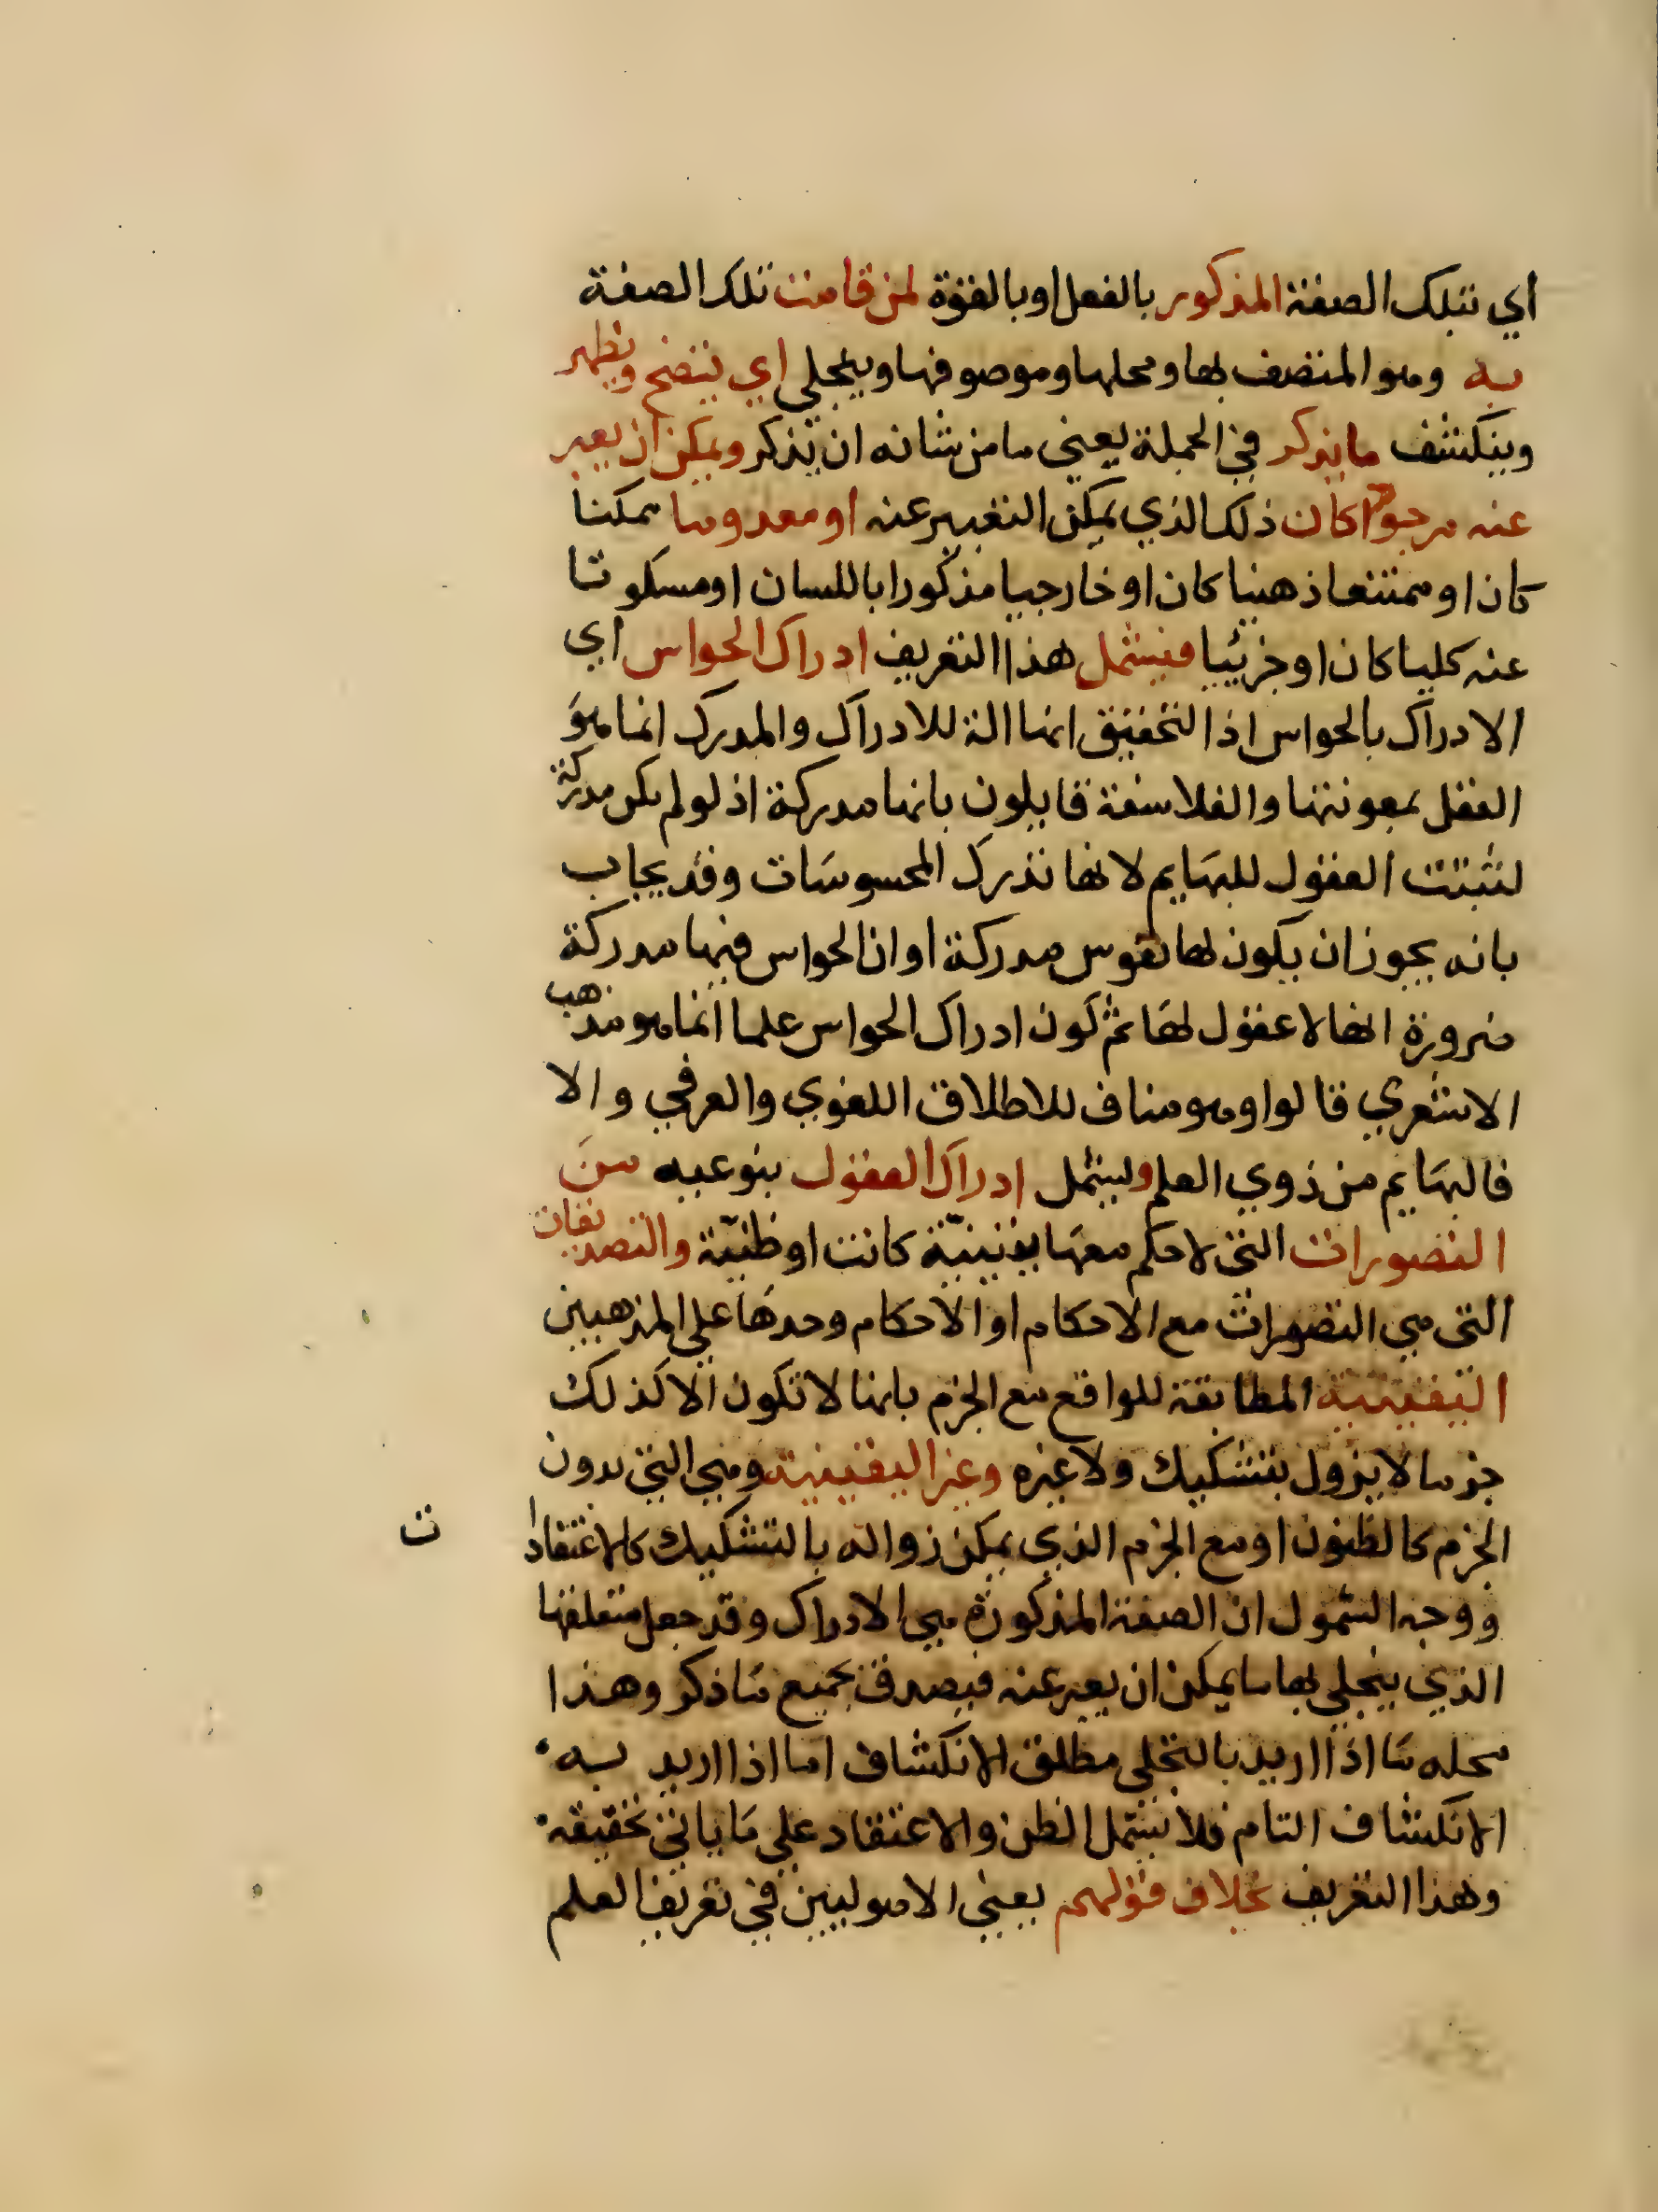 اي بتلك الصفة المذكور بالفعل او بالقوة لمن قامت تلك الصفة
به وهو المتصف بها ومحلها وموصوفها ويتجلي اي يتضح ويظهر
وينكشف ما يذكر في الجملة يعني ما من شانه ان يذكر ويمكن ان يعبر
عنه موجودا كان ذلك الذي يمكن التعبير عنه او معدوما ممكنا
كان او ممتنعا ذهنيا كان او خارجيا مذكورا باللسان او مسكوتا
عنه كليا كان او جزئيا فيشمل هذا التعريف ادراك الحواس اي
الادراك بالحواس اذ التحقيق انها الة للادراك والمدرك انما هو
العقل بمعونتها والفلاسفة قايلون بانها مدركة اذ لو لم يكن مدركة
لثبتت العقول للبهايم لانها تدرك المحسوسات وقد يجاب
بانه يجوز ان يكون لها نفوس مدركة او ان الحواس فيها مدركة
ضرورة انها لا عقول لها ثم كون ادراك الحواس علما انما هو مذهب
الاشعري قالوا وهو مناف للاطلاق اللغوي والعرفي والا
فالبهايم من ذوي العلم وليشمل ادراك العقول بنوعيه من
التصورات التي لا حكم معها يقينية كانت او ظنية والتصديقات
التي هي التصورات مع الاحكام او الاحكام وحدها علي المذهبين
اليقينية المطابقة للواقع مع الجزم بانها لا تكون الا كذلك
جزما لا يزول بتشكيك ولا غيره وغير اليقينية وهي التي بدون
الجزم كالظنون او مع الجزم الذي يمكن زواله بالتشكيك كالاعتقادا ت
ووجه الشمول ان الصفة المذكورة هي الادراك وقد جعل متعلقها
الذي ينجلي بها ما يمكن ان يعبر عنه فيصدق بجميع ما ذكر وهذا
محله ما اذا اريد بالتجلي مطلق الانكشاف اما اذا اريد به
الانكشاف التام فلا يشمل الظن والاعتقاد علي ما ياتي تحقيقه
وهذا التعريف بخلاف قولهم يعني الاصوليين في تعريف العلم